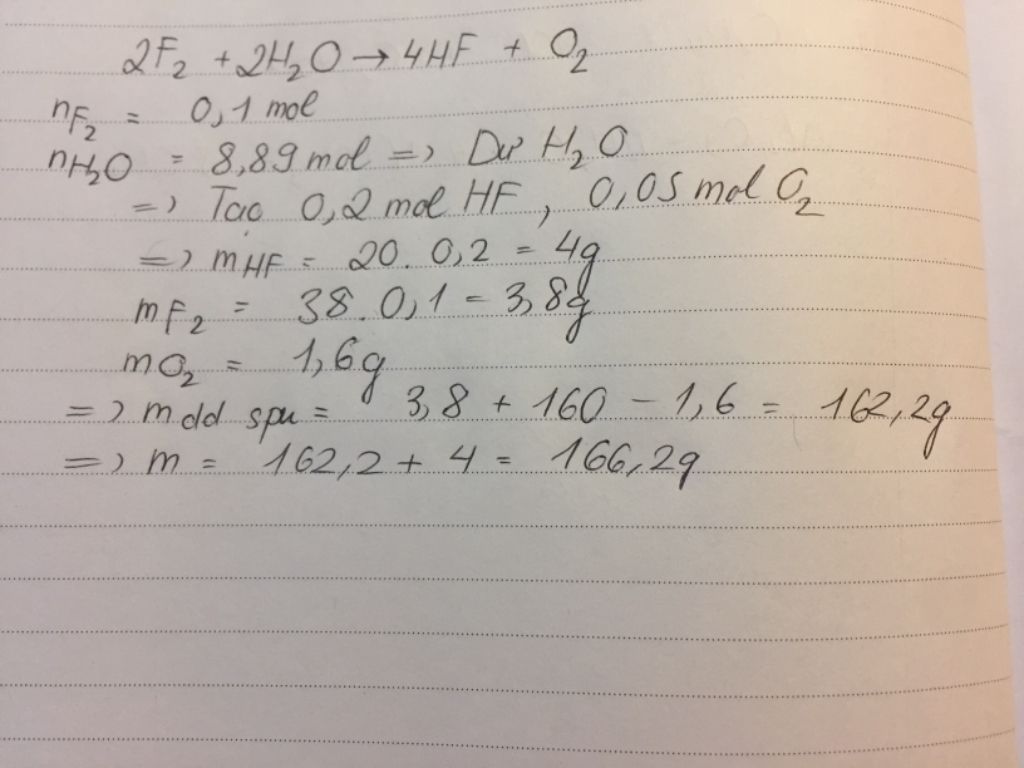 2F₂ + 2H₂O → 4HF + O₂
nF₂ = 0,1 mol
nH₂O = 8,89 mol => Dư H₂O
=> Tạo 0,2 mol HF, 0,05 mol O₂
=> mHF = 20. 0,2 = 4g
mF₂ = 38. 0,1 = 3,8g
mO₂ = 1,6g
=> mdd spu = 3,8 + 160 - 1,6 = 162,2g
=> m = 162,2 + 4 = 166,2g